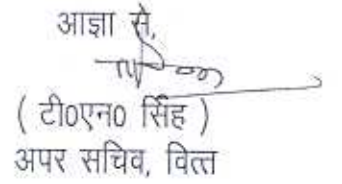 आज्ञा से,
( टी0एन0 सिंह )
अपर सचिव, वित्त